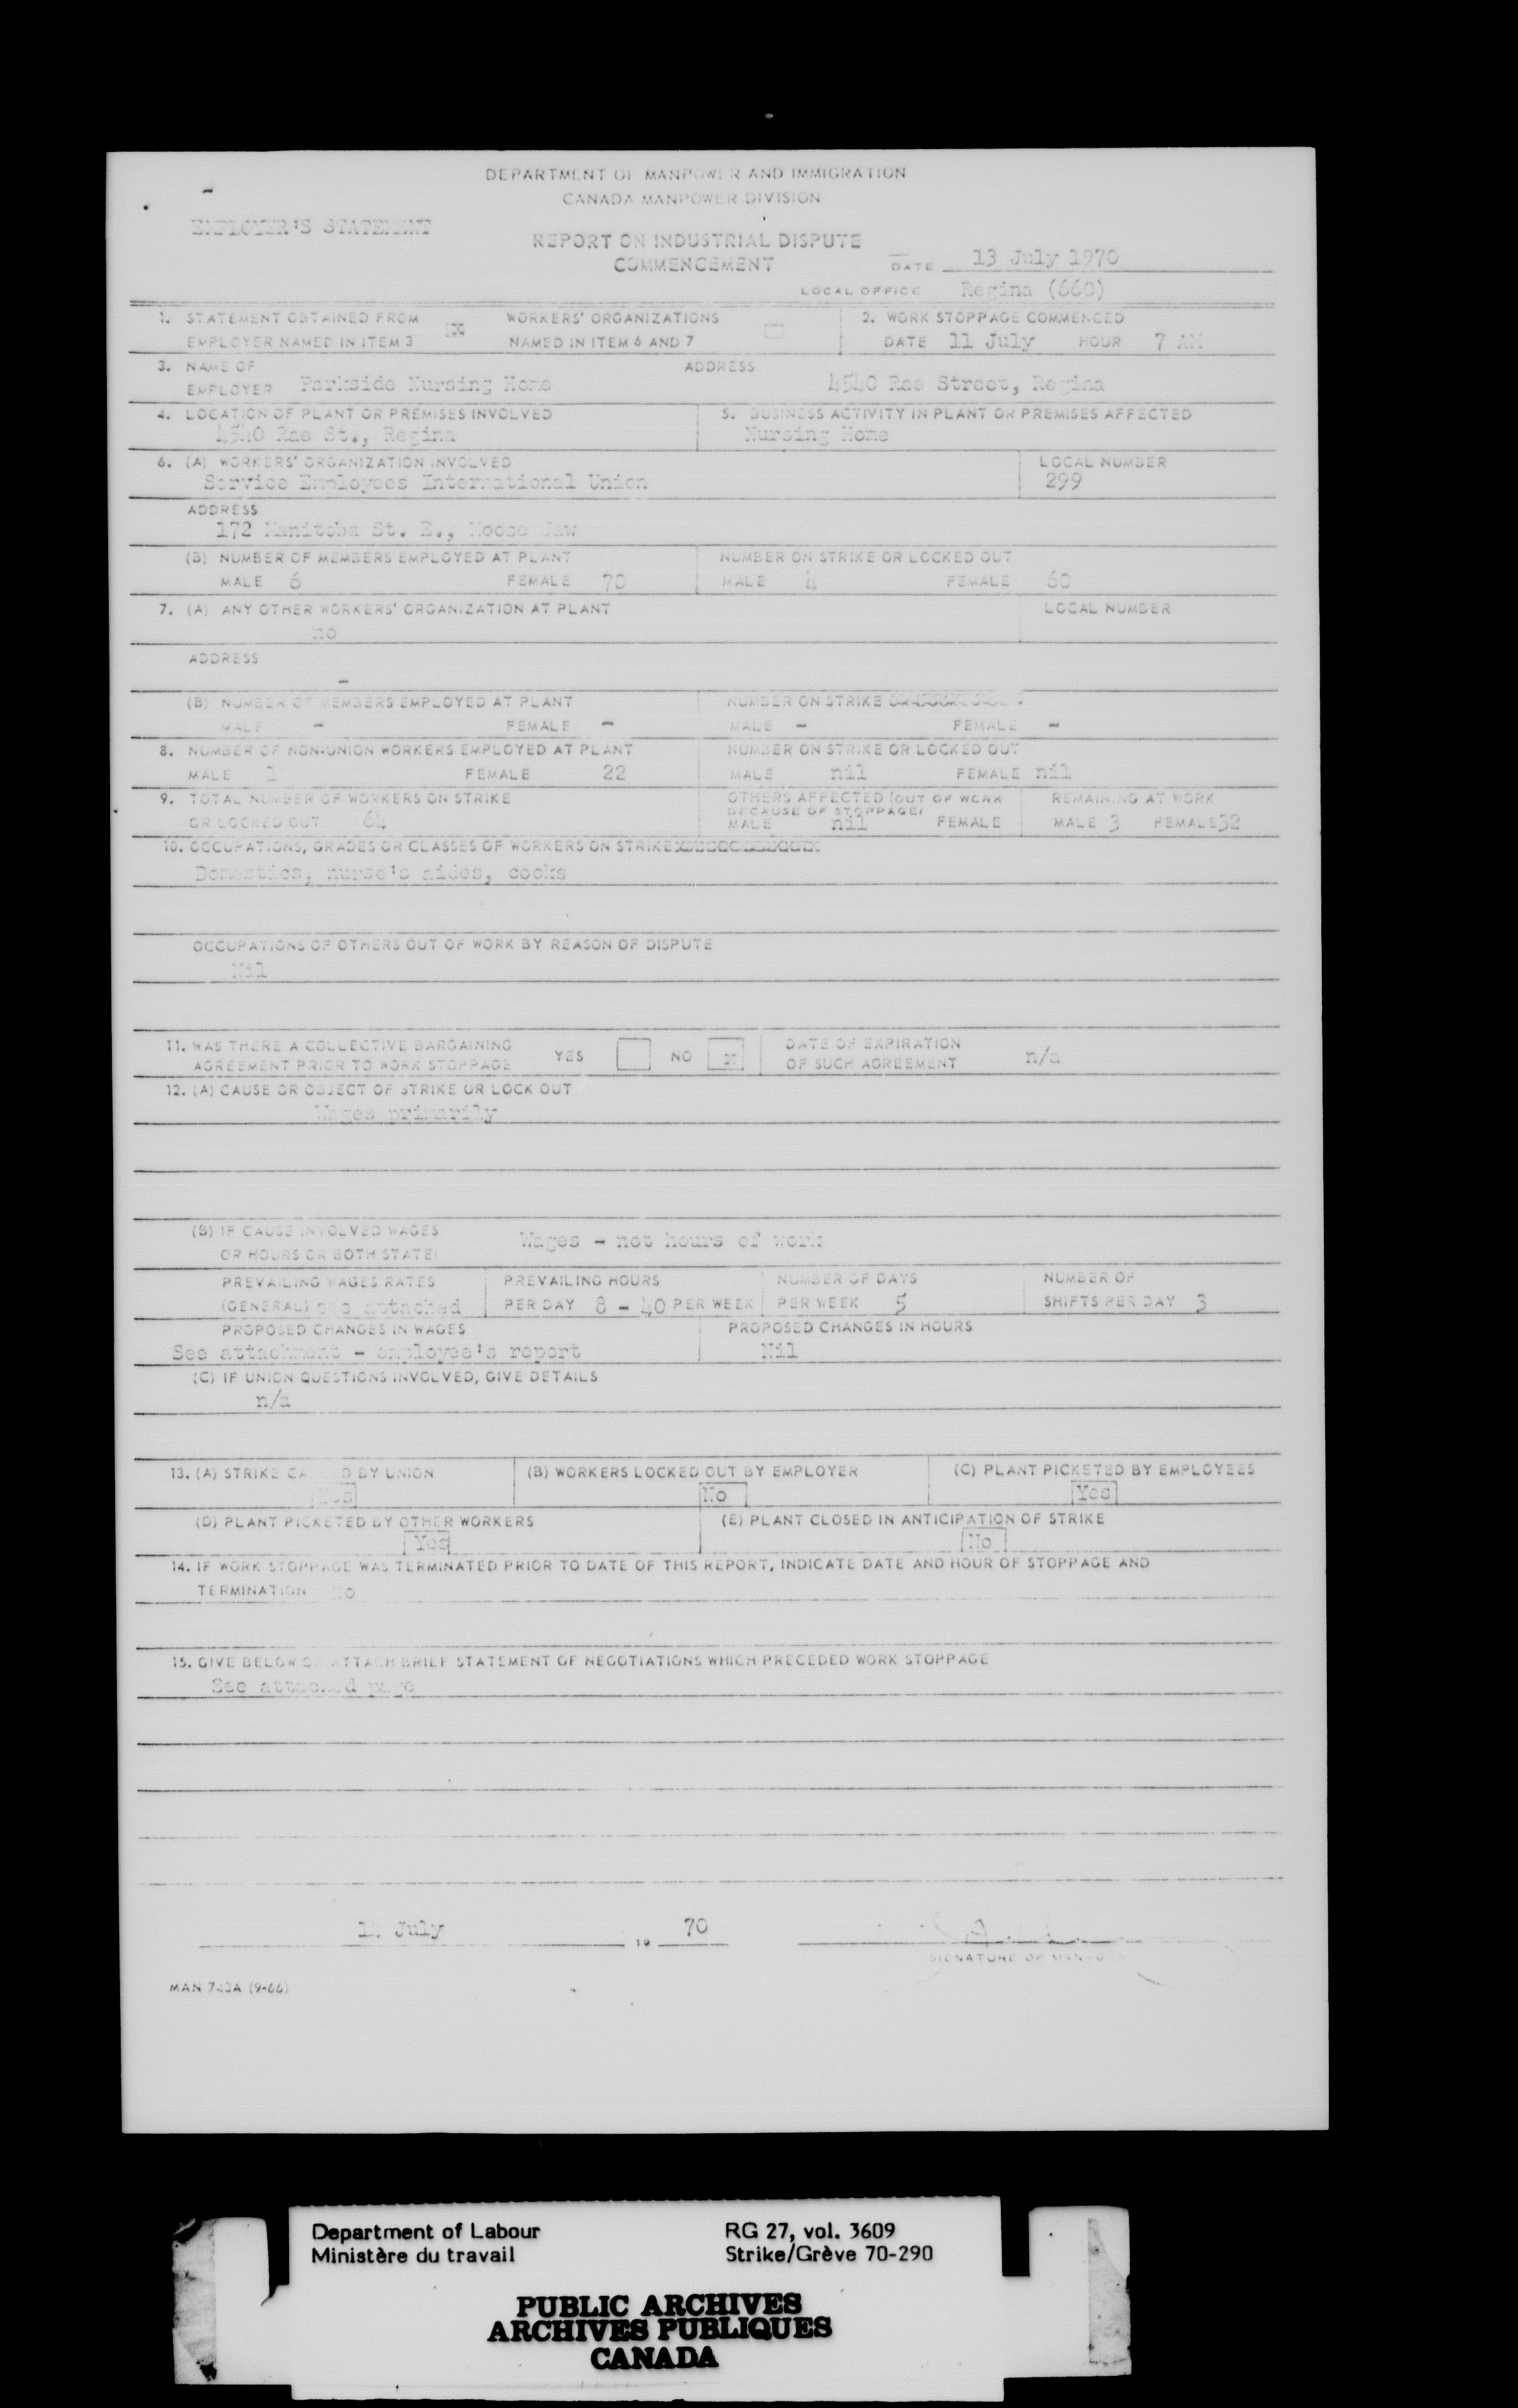 DEPARTMENT OF MANPOWER AND IMMIGRATION
CANADA MANPOWER DIVISION
EMPLOYER'S STATEMENT
REPORT ON INDUSTRIAL DISPUTE
COMMENCEMENT
DATE 13 July 1970
LOCAL OFFICE Regina (660)
1. STATEMENT OBTAINED FROM EMPLOYER NAMED IN ITEM 3 x WORKERS' ORGANIZATIONS NAMED IN ITEM 6 AND 7
2. WORK STOPPAGE COMMENCED
DATE 11 July HOUR 7 AM
3. NAME OF EMPLOYER Parkside Nursing Home ADDRESS 4540 Rae Street, Regina
4. LOCATION OF PLANT OR PREMISES INVOLVED
4540 Rae St., Regina
5. BUSINESS ACTIVITY IN PLANT OR PREMISES AFFECTED
Nursing Home
6. (A) WORKERS' ORGANIZATION INVOLVED
Service Employees International Union
LOCAL NUMBER
299
ADDRESS
172 Manitoba St. E., Moose Jaw
(B) NUMBER OF MEMBERS EMPLOYED AT PLANT
MALE 6 FEMALE 70
NUMBER ON STRIKE OR LOCKED OUT
MALE 4 FEMALE 60
7. (A) ANY OTHER WORKERS' ORGANIZATION AT PLANT
no
LOCAL NUMBER
ADDRESS
-
(B) NUMBER OF MEMBERS EMPLOYED AT PLANT
MALE - FEMALE -
NUMBER ON STRIKE
MALE - FEMALE -
8. NUMBER OF NON-UNION WORKERS EMPLOYED AT PLANT
MALE 1 FEMALE 22
NUMBER ON STRIKE OR LOCKED OUT
MALE nil FEMALE nil
9. TOTAL NUMBER OF WORKERS ON STRIKE
OR LOCKED OUT 64
OTHERS AFFECTED (OUT OF WORK
BECAUSE OF STOPPAGE)
MALE nil FEMALE
REMAINING AT WORK
MALE 3 FEMALE 32
10. OCCUPATIONS, GRADES OR CLASSES OF WORKERS ON STRIKE
Domestics, nurse's aides, cooks
OCCUPATIONS OF OTHERS OUT OF WORK BY REASON OF DISPUTE
Nil
11. WAS THERE A COLLECTIVE BARGAINING
AGREEMENT PRIOR TO WORK STOPPAGE YES NO x
DATE OF EXPIRATION
OF SUCH AGREEMENT n/a
12. (A) CAUSE OR OBJECT OF STRIKE OR LOCK OUT
Wages primarily
(B) IF CAUSE INVOLVED WAGES
OR HOURS OR BOTH STATE: Wages - not hours of work
PREVAILING WAGES RATES
(GENERAL) see attached
PREVAILING HOURS
PER DAY 8 - 40 PER WEEK
NUMBER OF DAYS
PER WEEK 5
NUMBER OF
SHIFTS PER DAY 3
PROPOSED CHANGES IN WAGES
See attachment - employee's report
PROPOSED CHANGES IN HOURS
Nil
(C) IF UNION QUESTIONS INVOLVED, GIVE DETAILS
n/a
13. (A) STRIKE CALLED BY UNION
Yes
(B) WORKERS LOCKED OUT BY EMPLOYER
No
(C) PLANT PICKETED BY EMPLOYEES
Yes
(D) PLANT PICKETED BY OTHER WORKERS
Yes
(E) PLANT CLOSED IN ANTICIPATION OF STRIKE
No
14. IF WORK STOPPAGE WAS TERMINATED PRIOR TO DATE OF THIS REPORT, INDICATE DATE AND HOUR OF STOPPAGE AND
TERMINATION No
15. GIVE BELOW OR ATTACH BRIEF STATEMENT OF NEGOTIATIONS WHICH PRECEDED WORK STOPPAGE
See attached page
July 19 70
SIGNATURE OF
MAN 743A (9-66)
Department of Labour
Ministère du travail
RG 27, vol. 3609
Strike/Grève 70-290
PUBLIC ARCHIVES
ARCHIVES PUBLIQUES
CANADA